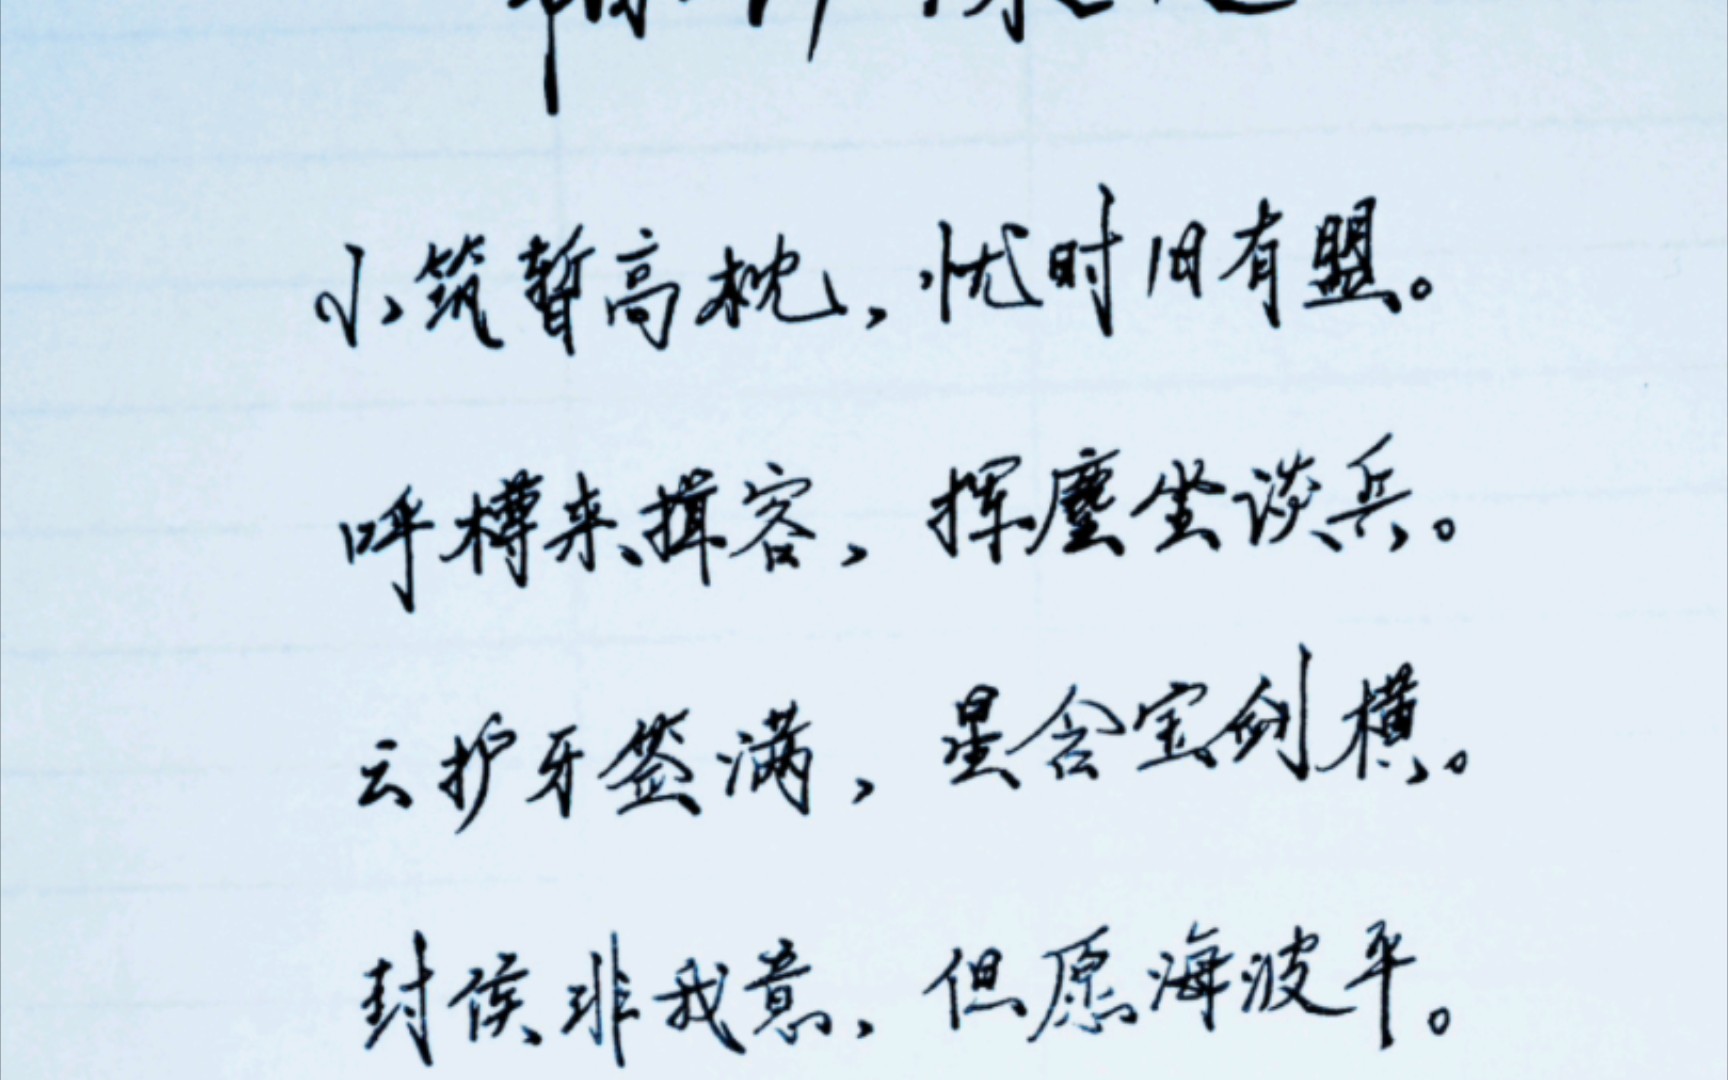 小筑暂高枕，忧时旧有盟。
呼樽来揖客，挥麈坐谈兵。
云护牙签满，星含宝剑横。
封侯非我意，但愿海波平。